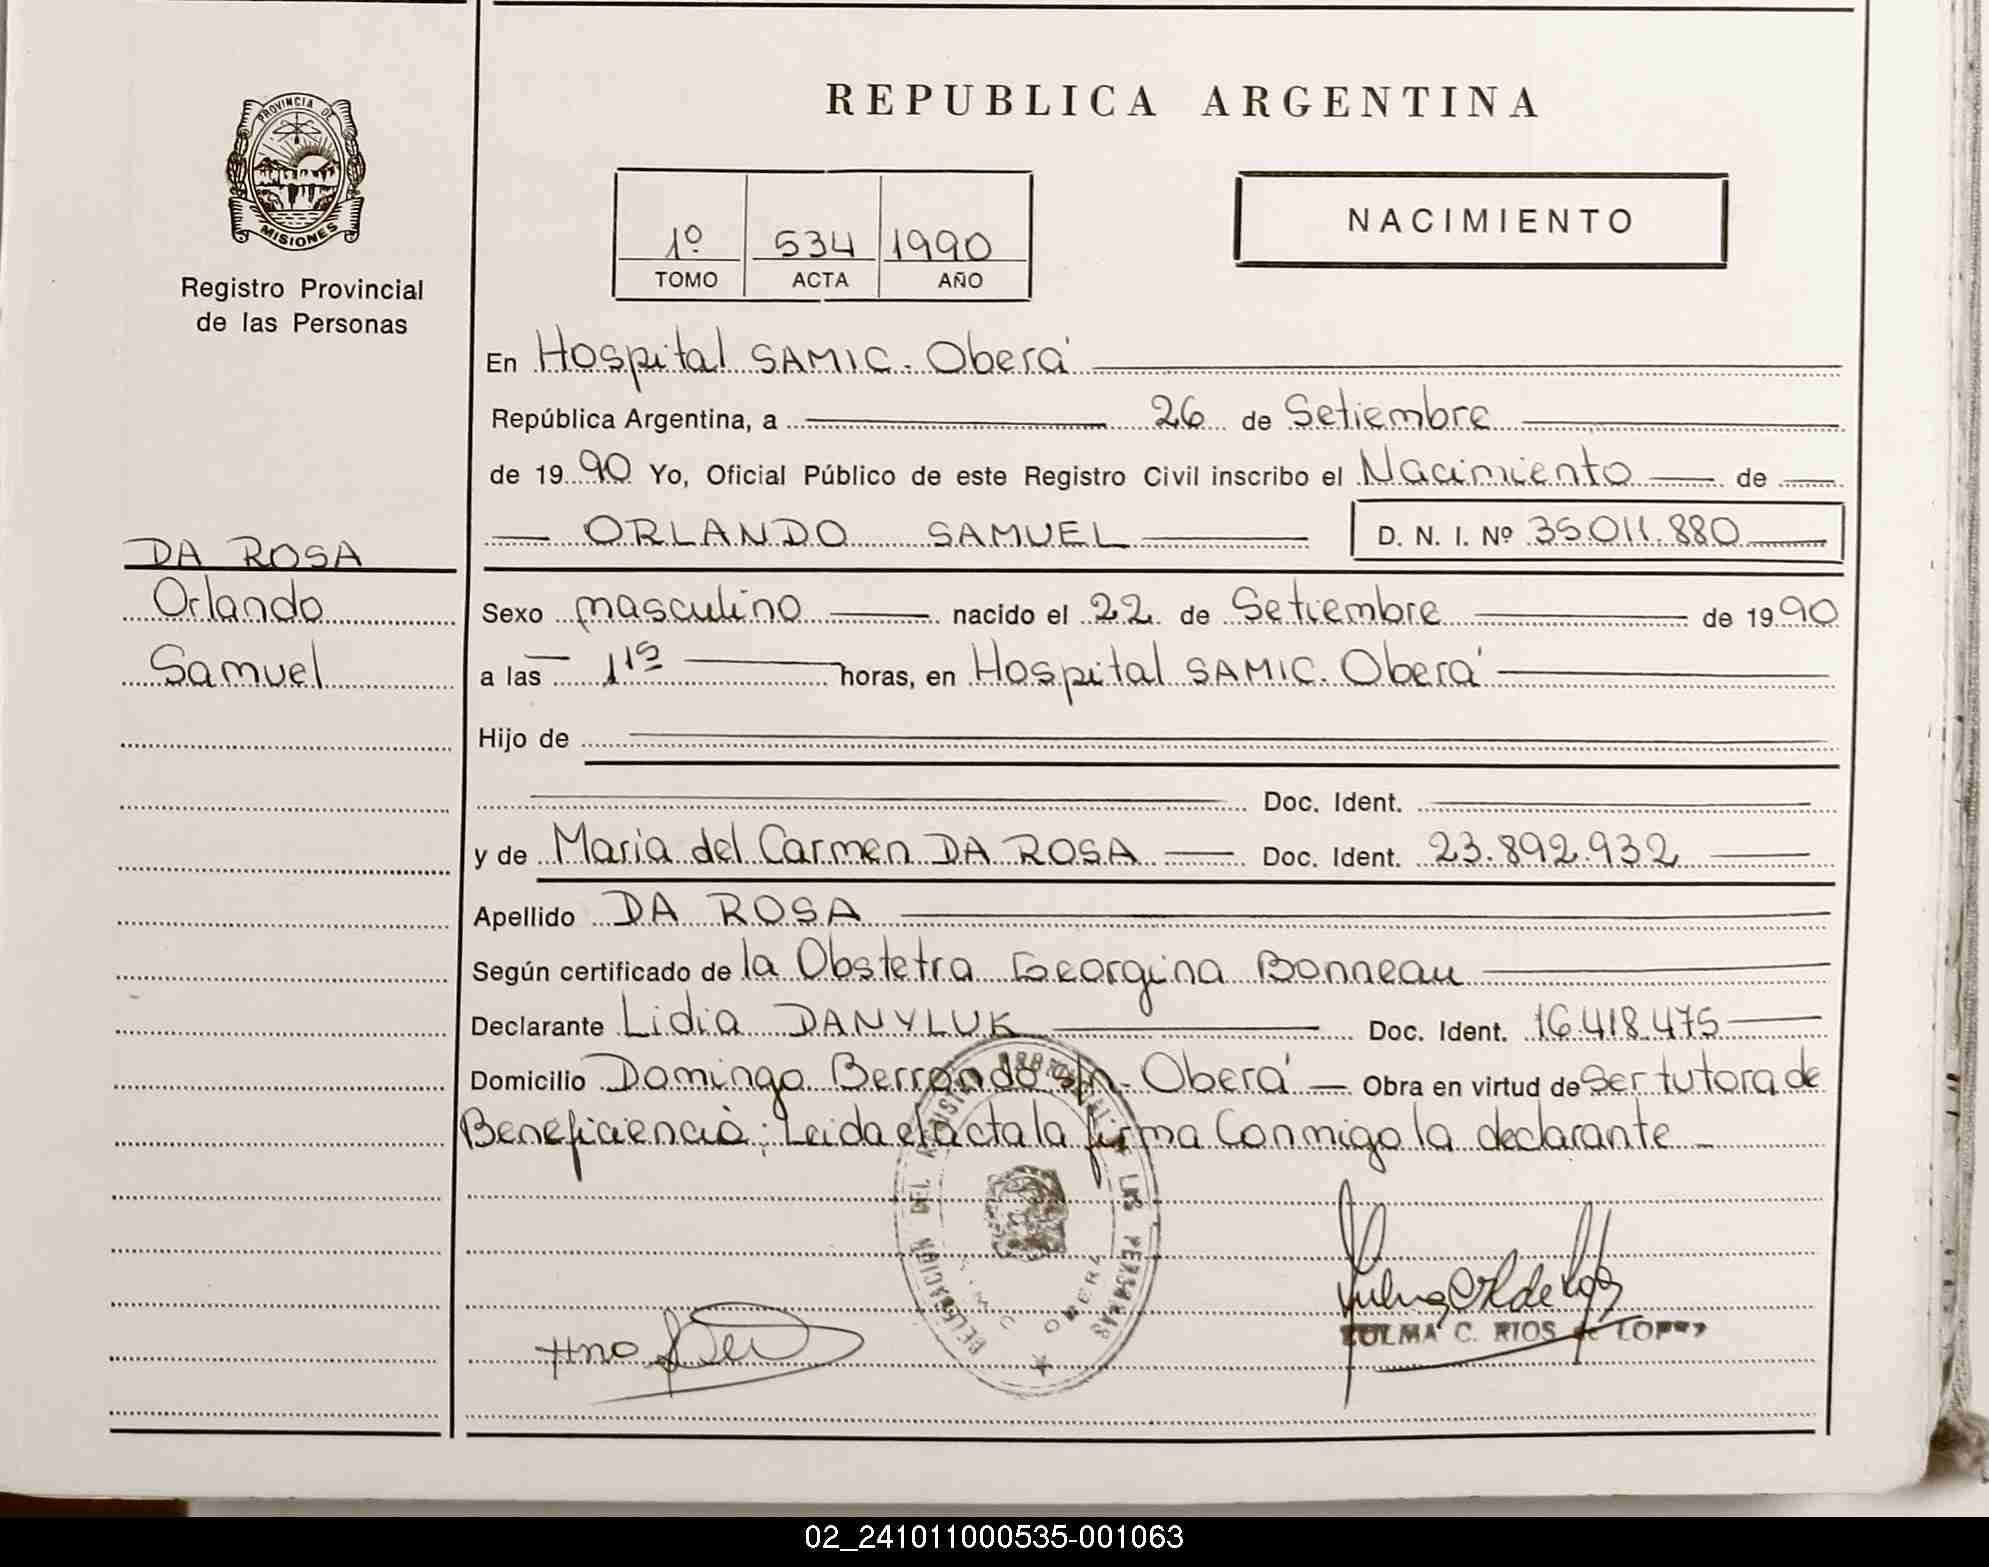 PROVINCIA DE
MISIONES
Registro Provincial
de las Personas
DA ROSA
Orlando
Samuel
REPUBLICA ARGENTINA
1º 534 1990
TOMO ACTA AÑO
NACIMIENTO
En Hospital SAMIC. Oberá
República Argentina, a 26 de Setiembre
de 1990 Yo, Oficial Público de este Registro Civil inscribo el Nacimiento de
ORLANDO SAMUEL D. N. I. Nº 35.011.880
Sexo masculino nacido el 22 de Setiembre de 1990
a las 11 horas, en Hospital SAMIC. Oberá
Hijo de
Doc. Ident.
y de Maria del Carmen DA ROSA Doc. Ident. 23.892.932
Apellido DA ROSA
Según certificado de la Obstetra Georgina Bonneau
Declarante Lidia DANYLUK Doc. Ident. 16.418.475
Domicilio Domingo Berrondo s/n. Oberá Obra en virtud de Ser tutora de
Beneficiencia; Leida el acta la firma Conmigo la declarante
DELEGACION DEL REGISTRO PROVINCIAL DE LAS PERSONAS
OBERA
Hna
ZULMA C. RIOS de LOPEZ
02_241011000535-001063